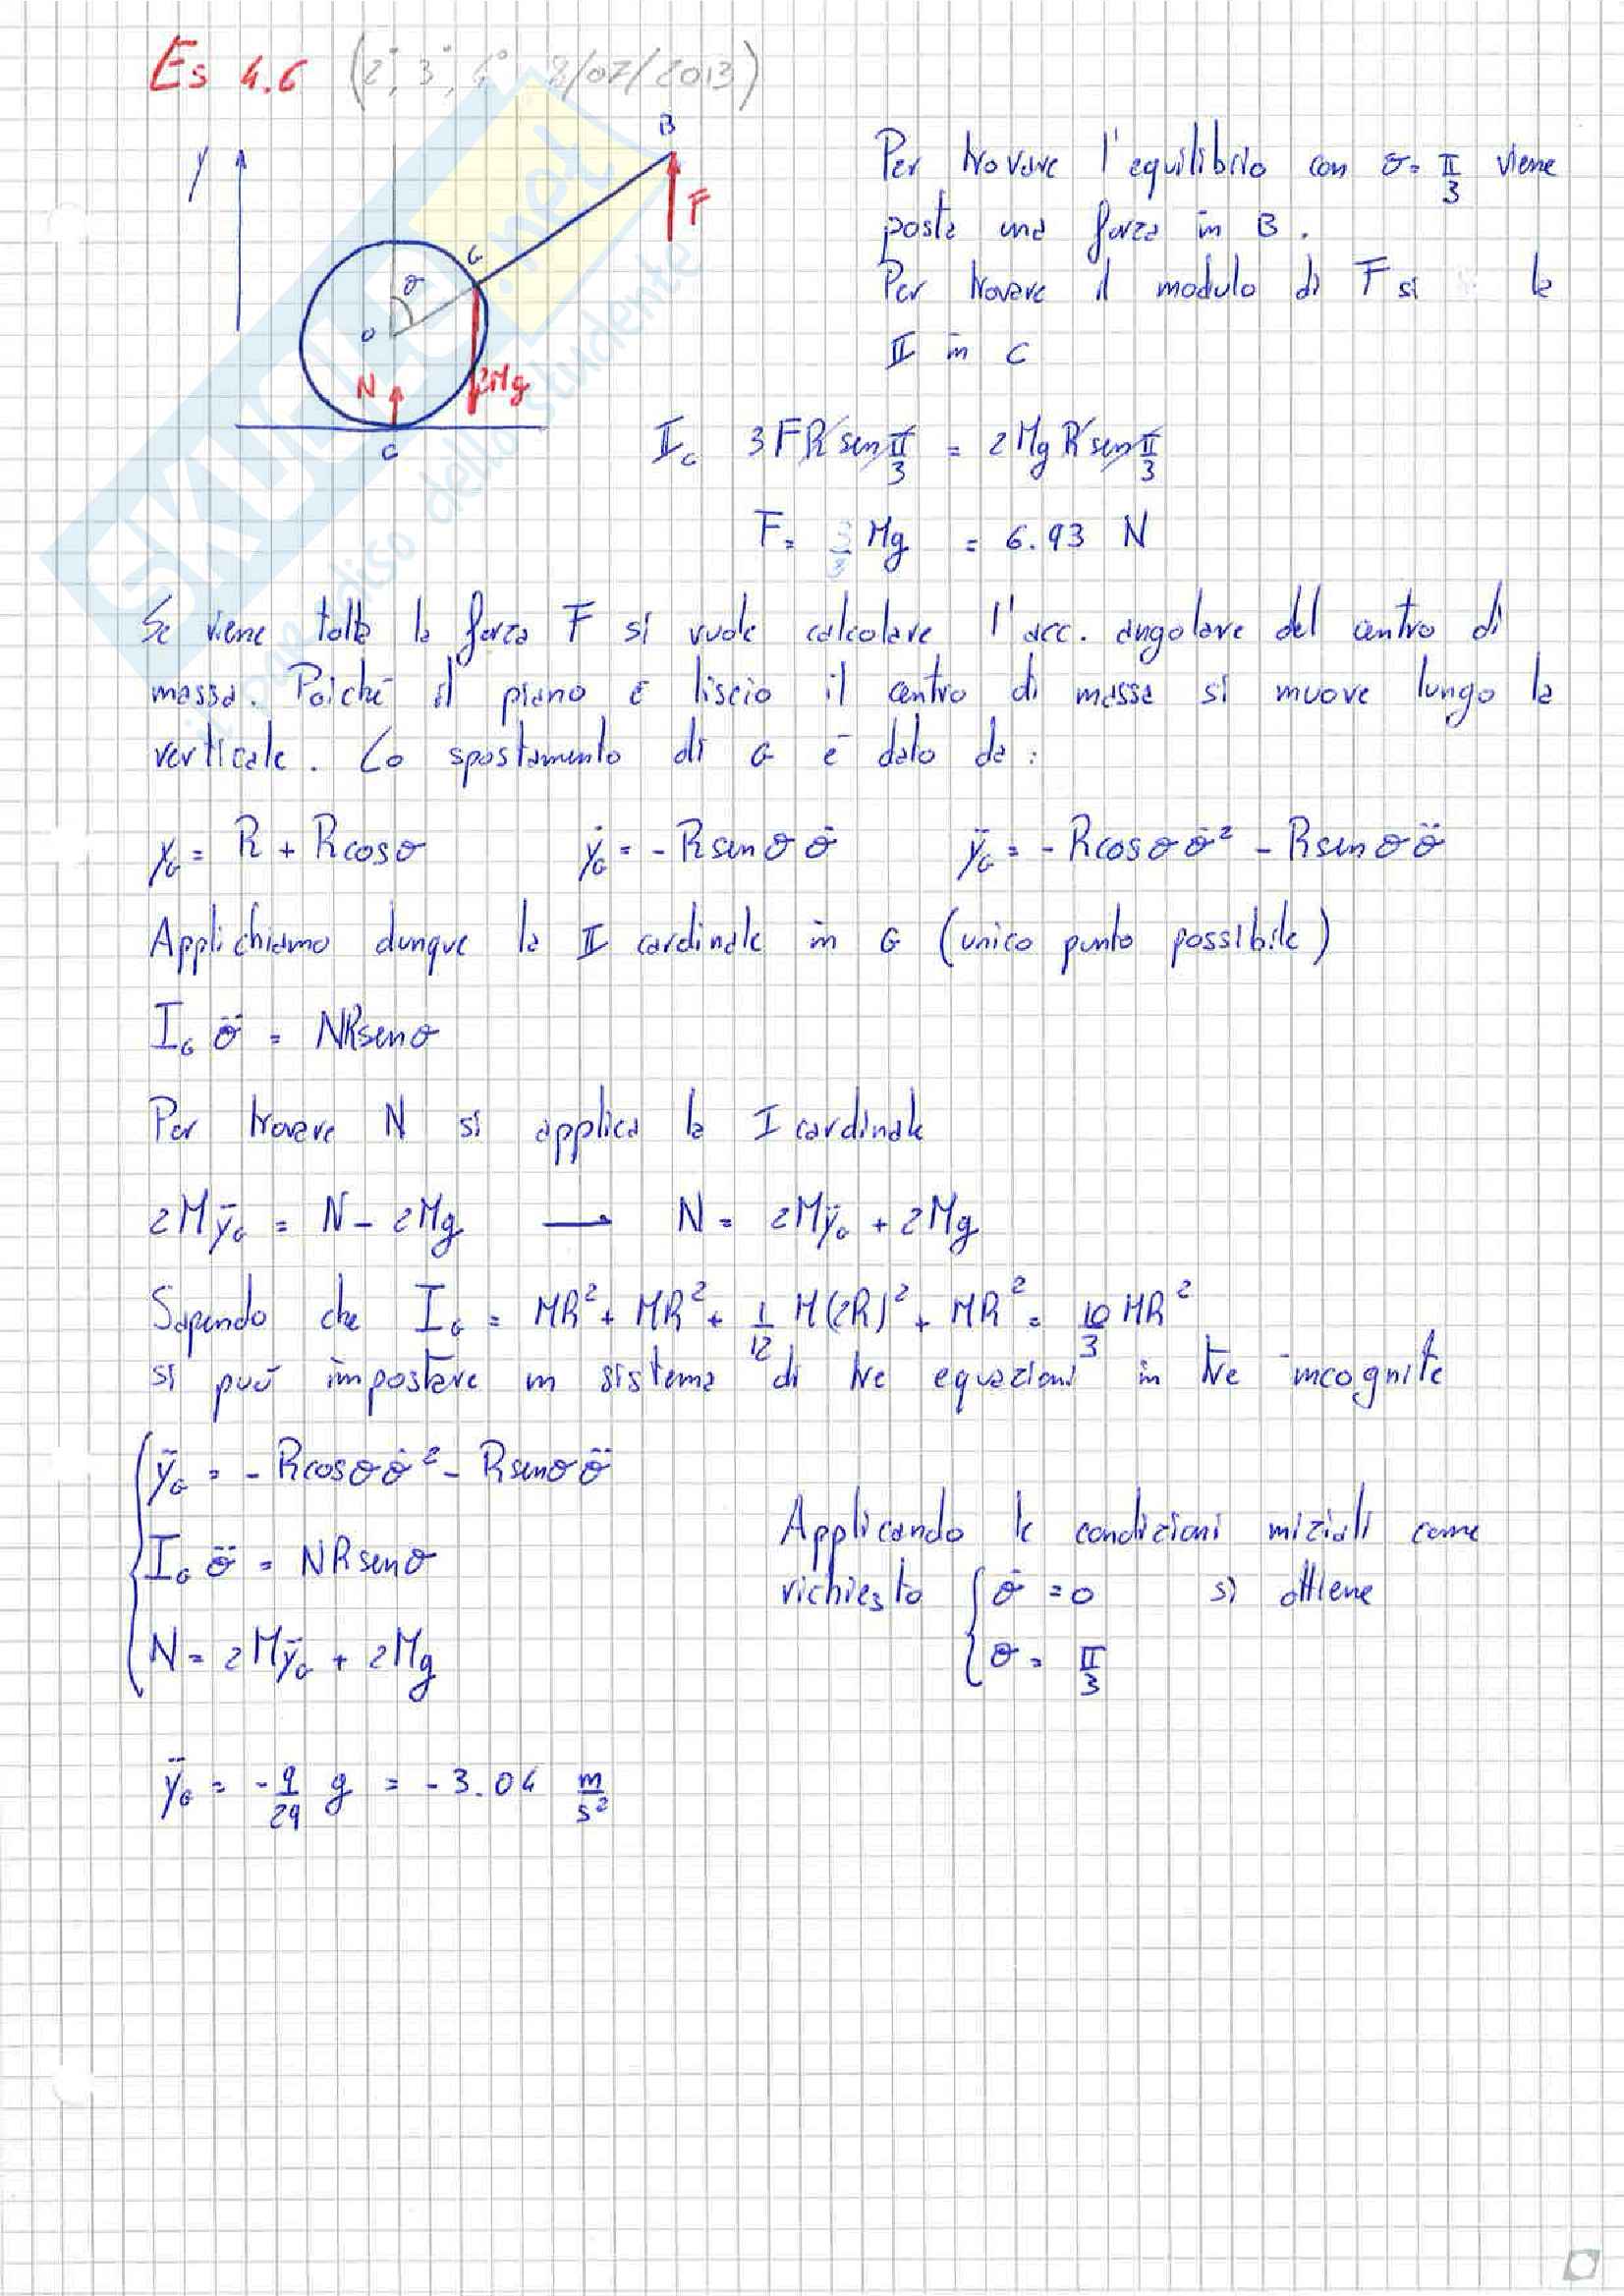 Es 4.6 (2°, 3°, 4° 8/07/2013)
Y
B
F
G
θ
O
N
2Mg
C
Per trovare l'equilibrio con θ = π/3 viene
posta una forza in B.
Per trovare il modulo di F si la
II in C
3FR sen π/3 = 2MgR sen π/3
F = Mg = 6.93 N
Se viene tolta la forza F si vuole calcolare l'acc. angolare del centro di
massa. Poiché il piano è liscio il centro di massa si muove lungo la
verticale. Lo spostamento di G è dato da:
y_G = R + R cosθ   ẏ_G = -R senθ θ̇   ÿ_G = -R cosθ θ̇² - R senθ θ̈
Applichiamo dunque la II cardinale in G (unico punto possibile)
I_G θ̈ = NR senθ
Per trovare N si applica la I cardinale
2Mÿ_G = N - 2Mg → N = 2Mÿ_G + 2Mg
Sapendo che I_G = MR² + MR² + 1/12 M(2R)² + MR² = 10/3 MR²
si può impostare un sistema di tre equazioni in tre incognite
ÿ_G = -R cosθ θ̇² - R senθ θ̈
I_G θ̈ = NR senθ
N = 2Mÿ_G + 2Mg
Applicando le condizioni iniziali come
richiesto { θ̇ = 0 si ottiene
θ = π/3
ÿ_G = -9/29 g = -3.04 m/s²
SKUOLA.net
il paradiso dello studente